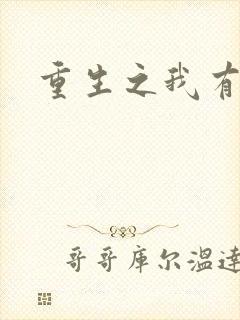 重生之我有
哥哥库尔温達